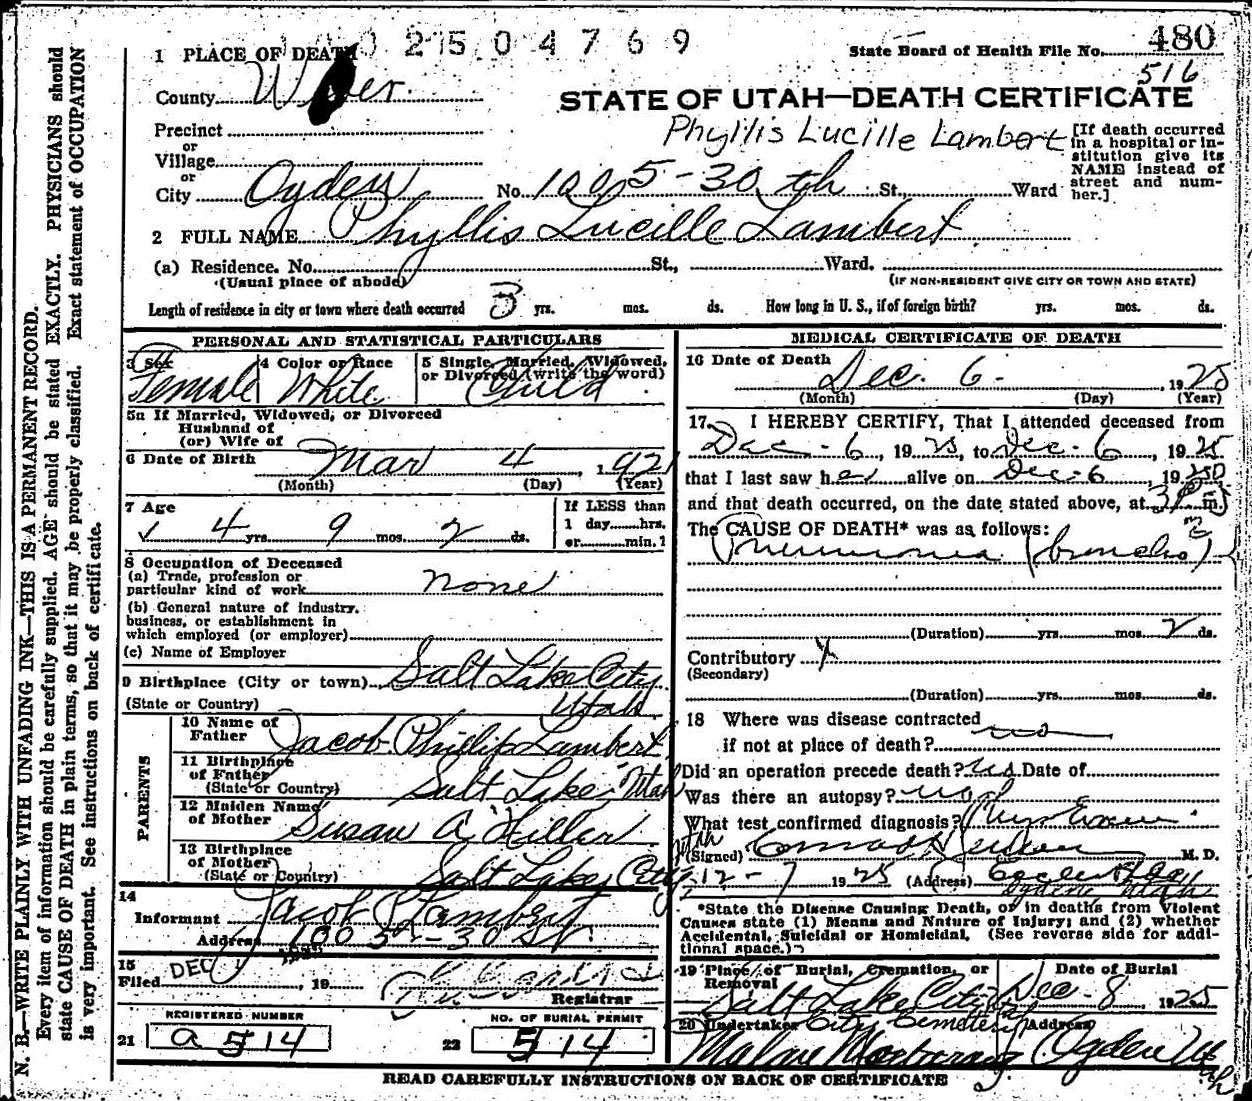 2504769
1 PLACE OF DEATH
State Board of Health File No. 480
516
County Weber
STATE OF UTAH—DEATH CERTIFICATE
Phyllis Lucille Lambert
Precinct
or
Village
or
City Ogden No. 1005-30th St., Ward
[If death occurred in a hospital or institution give its NAME instead of street and number.]
2 FULL NAME Phyllis Lucille Lambert
(a) Residence. No. St., Ward.
(Usual place of abode) (IF NON-RESIDENT GIVE CITY OR TOWN AND STATE)
Length of residence in city or town where death occurred 3 yrs. mos. ds. How long in U. S., if of foreign birth? yrs. mos. ds.
PERSONAL AND STATISTICAL PARTICULARS
3 Sex Female
4 Color or Race White
5 Single, Married, Widowed, or Divorced (write the word) Child
5a If Married, Widowed, or Divorced
Husband of
(or) Wife of
6 Date of Birth Mar 4, 1921
(Month) (Day) (Year)
7 Age 4 yrs. 9 mos. 2 ds.
If LESS than
1 day......hrs.
or......min.?
8 Occupation of Deceased
(a) Trade, profession or
particular kind of work none
(b) General nature of industry,
business, or establishment in
which employed (or employer)
(c) Name of Employer
9 Birthplace (City or town) Salt Lake City
(State or Country) Utah
PARENTS
10 Name of Father Jacob Phillip Lambert
11 Birthplace of Father (State or Country) Salt Lake, Utah
12 Maiden Name of Mother Susan A. Hiller
13 Birthplace of Mother (State or Country) Salt Lake City
14
Informant Jacob P Lambert
Address 1005-30 St.
15
Filed DEC , 19
Registrar
REGISTERED NUMBER
21 a 514
NO. OF BURIAL PERMIT
22 514
MEDICAL CERTIFICATE OF DEATH
16 Date of Death Dec. 6. , 1925
(Month) (Day) (Year)
17 I HEREBY CERTIFY, That I attended deceased from
Dec - 6, 1925, to Dec - 6, 1925
that I last saw her alive on Dec - 6, 1925
and that death occurred, on the date stated above, at m.
The CAUSE OF DEATH* was as follows:
Pneumonia (broncho)
(Duration) yrs. mos. 2 ds.
Contributory
(Secondary)
(Duration) yrs. mos. ds.
18 Where was disease contracted
if not at place of death? no
Did an operation precede death? no Date of
Was there an autopsy? no
What test confirmed diagnosis? Phys Exam
(Signed) M. D.
12-7 1925 (Address)
Ogden Utah
*State the Disease Causing Death, or in deaths from Violent
Causes state (1) Means and Nature of Injury; and (2) whether
Accidental, Suicidal or Homicidal. (See reverse side for additional space.)
19 Place of Burial, Cremation, or Removal Salt Lake City
City Cemetery
Date of Burial Dec - 8 1925
20 Undertaker
Address Ogden Utah
READ CAREFULLY INSTRUCTIONS ON BACK OF CERTIFICATE
N. B.—WRITE PLAINLY WITH UNFADING INK—THIS IS A PERMANENT RECORD.
Every item of information should be carefully supplied. AGE should be stated EXACTLY. PHYSICIANS should
state CAUSE OF DEATH in plain terms, so that it may be properly classified. Exact statement of OCCUPATION
is very important. See instructions on back of certificate.